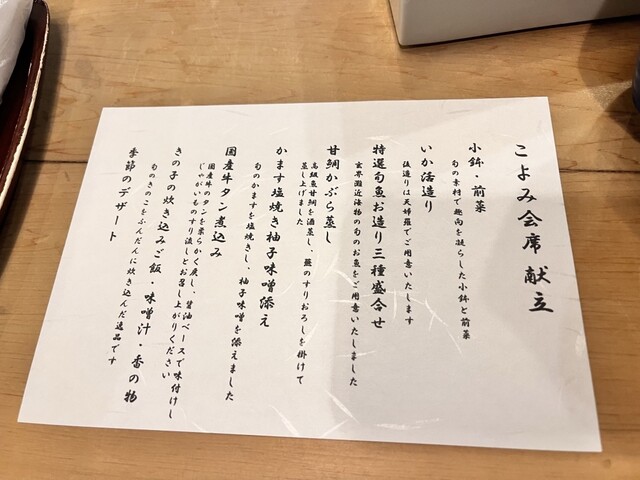 こよみ会席 献立
小鉢・前菜
旬の素材で趣向を凝らした小鉢と前菜
いか活造り
後造りは天婦羅でご用意いたします
特選旬魚お造り三種盛合せ
玄界灘近海物の旬のお魚をご用意いたしました
甘鯛かぶら蒸し
高級魚甘鯛を酒蒸し、蕪のすりおろしを掛けて
蒸し上げました
かます塩焼き柚子味噌添え
旬のかますを塩焼きし、柚子味噌を添えました
国産牛タン煮込み
国産牛のタンを柔らかく戻し、醤油ベースで味付けし
じゃがいものすり流しとお召し上がりください
きの子の炊き込みご飯・味噌汁・香の物
旬のきのこをふんだんに炊き込んだ逸品です
季節のデザート